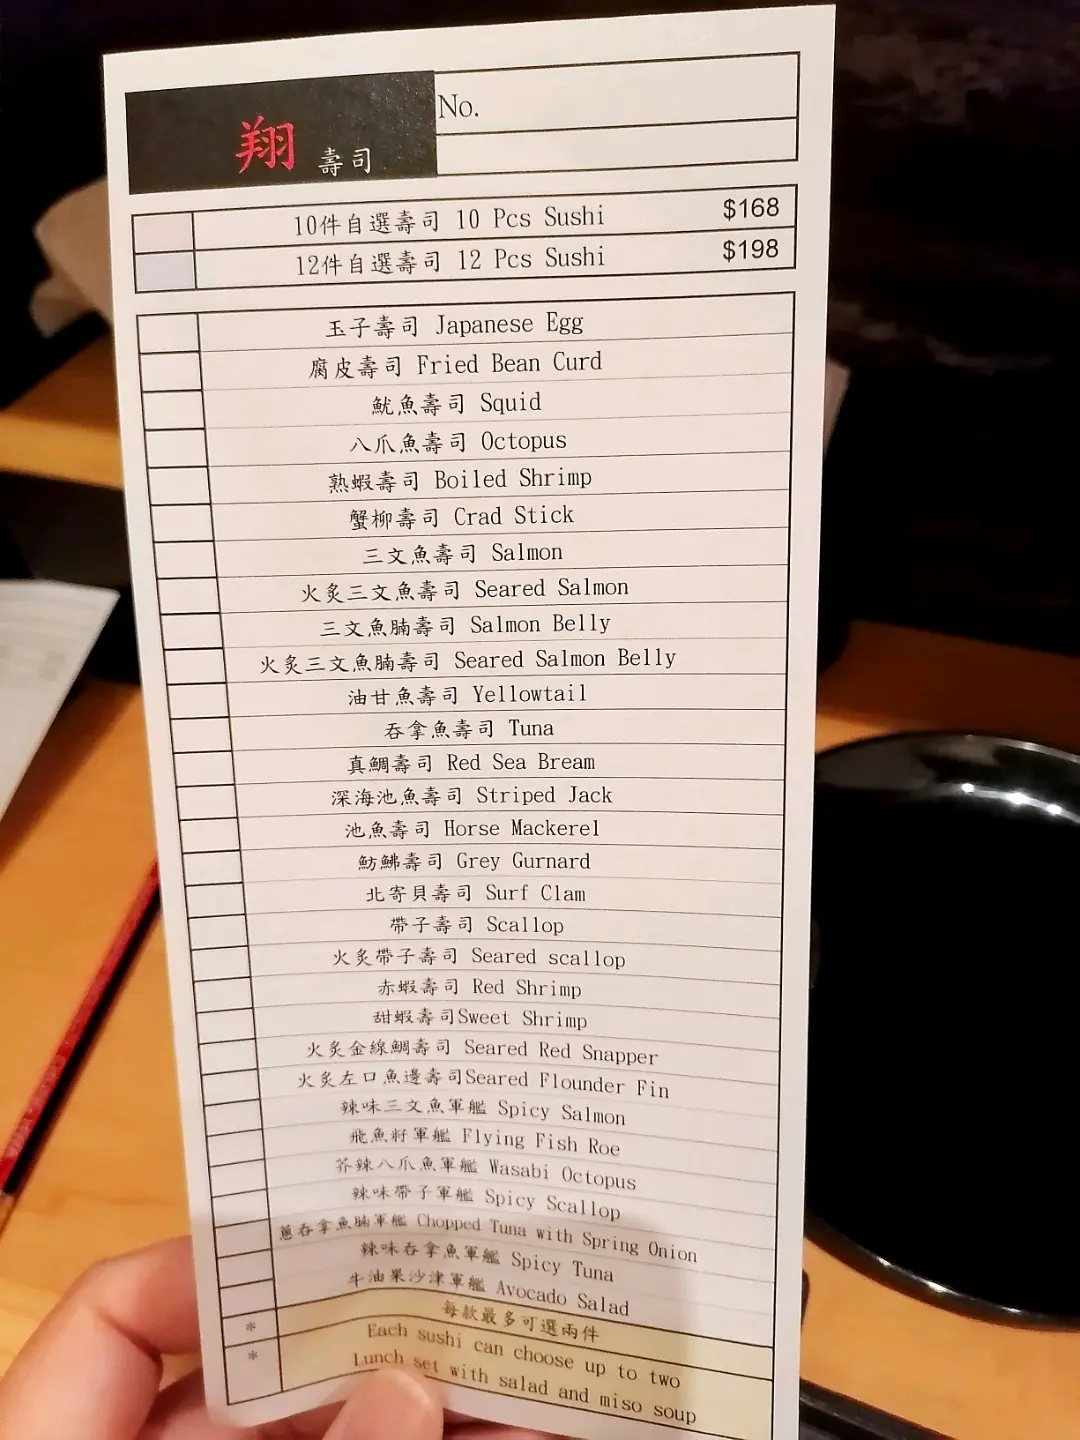 翔 壽司
No.
10件自選壽司 10 Pcs Sushi $168
12件自選壽司 12 Pcs Sushi $198
玉子壽司 Japanese Egg
腐皮壽司 Fried Bean Curd
魷魚壽司 Squid
八爪魚壽司 Octopus
熟蝦壽司 Boiled Shrimp
蟹柳壽司 Crad Stick
三文魚壽司 Salmon
火炙三文魚壽司 Seared Salmon
三文魚腩壽司 Salmon Belly
火炙三文魚腩壽司 Seared Salmon Belly
油甘魚壽司 Yellowtail
吞拿魚壽司 Tuna
真鯛壽司 Red Sea Bream
深海池魚壽司 Striped Jack
池魚壽司 Horse Mackerel
魴鮄壽司 Grey Gurnard
北寄貝壽司 Surf Clam
帶子壽司 Scallop
火炙帶子壽司 Seared scallop
赤蝦壽司 Red Shrimp
甜蝦壽司Sweet Shrimp
火炙金線鯛壽司 Seared Red Snapper
火炙左口魚邊壽司Seared Flounder Fin
辣味三文魚軍艦 Spicy Salmon
飛魚籽軍艦 Flying Fish Roe
芥辣八爪魚軍艦 Wasabi Octopus
辣味帶子軍艦 Spicy Scallop
蔥吞拿魚腩軍艦 Chopped Tuna with Spring Onion
辣味吞拿魚軍艦 Spicy Tuna
牛油果沙津軍艦 Avocado Salad
* 每款最多可選兩件
Each sushi can choose up to two
* Lunch set with salad and miso soup